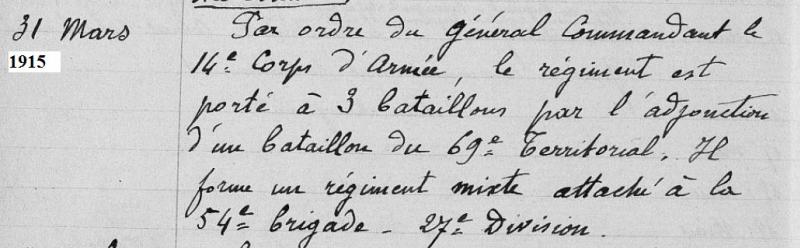 31 Mars Par ordre du général Commandant le
1915 14e Corps d'Armée, le régiment est
porté à 3 bataillons par l'adjonction
d'un bataillon du 69e Territorial. Il
forme un régiment mixte attaché à la
54e brigade - 27e Division.